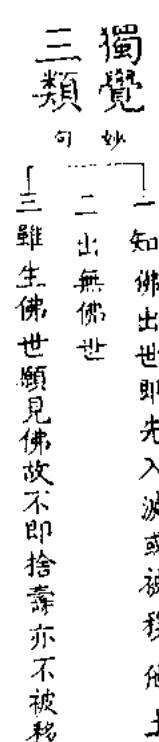 獨覺
三類
妙
句
一知佛出世即先入滅或被移他土
二出無佛世
三雖生佛世願見佛故不即捨壽亦不被移